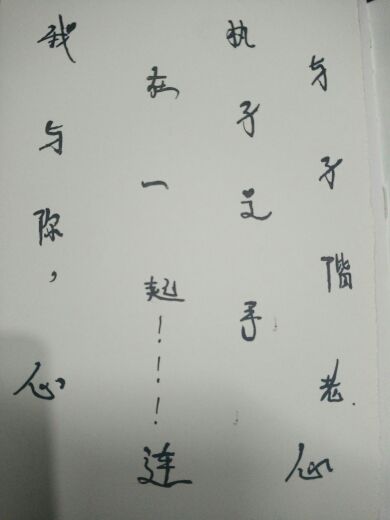 我与你，
在一起！！！
执子之手
与子偕老.
心连心